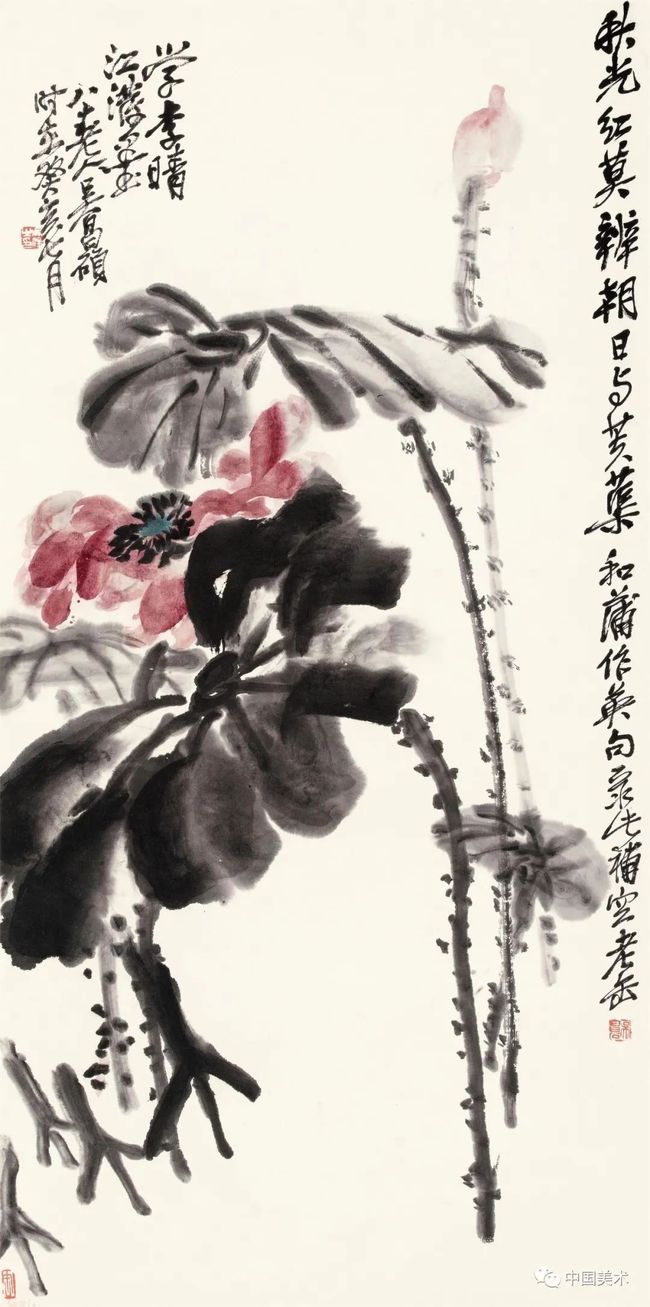 秋光红莫辨朝日与芙蕖 和蒲作英句录此補空老缶
学李晴
江潑墨
八十老人吴昌碩
时在癸亥七月
中国美术